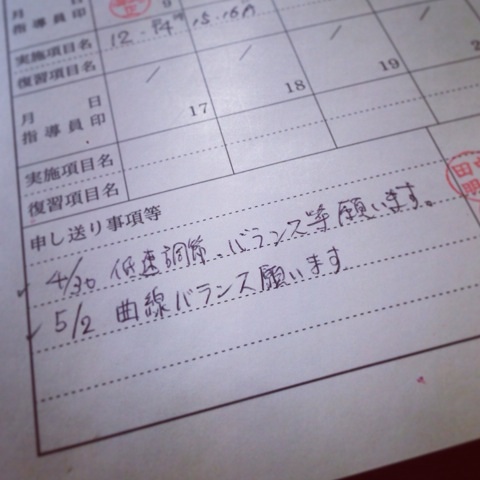 月 日
指導員印
9
実施項目名
12・14 15・16
復習項目名
月 日
指導員印
17
18
19
実施項目名
復習項目名
申し送り事項等
4/30 低速調節、バランス等願います。
5/2 曲線バランス願います